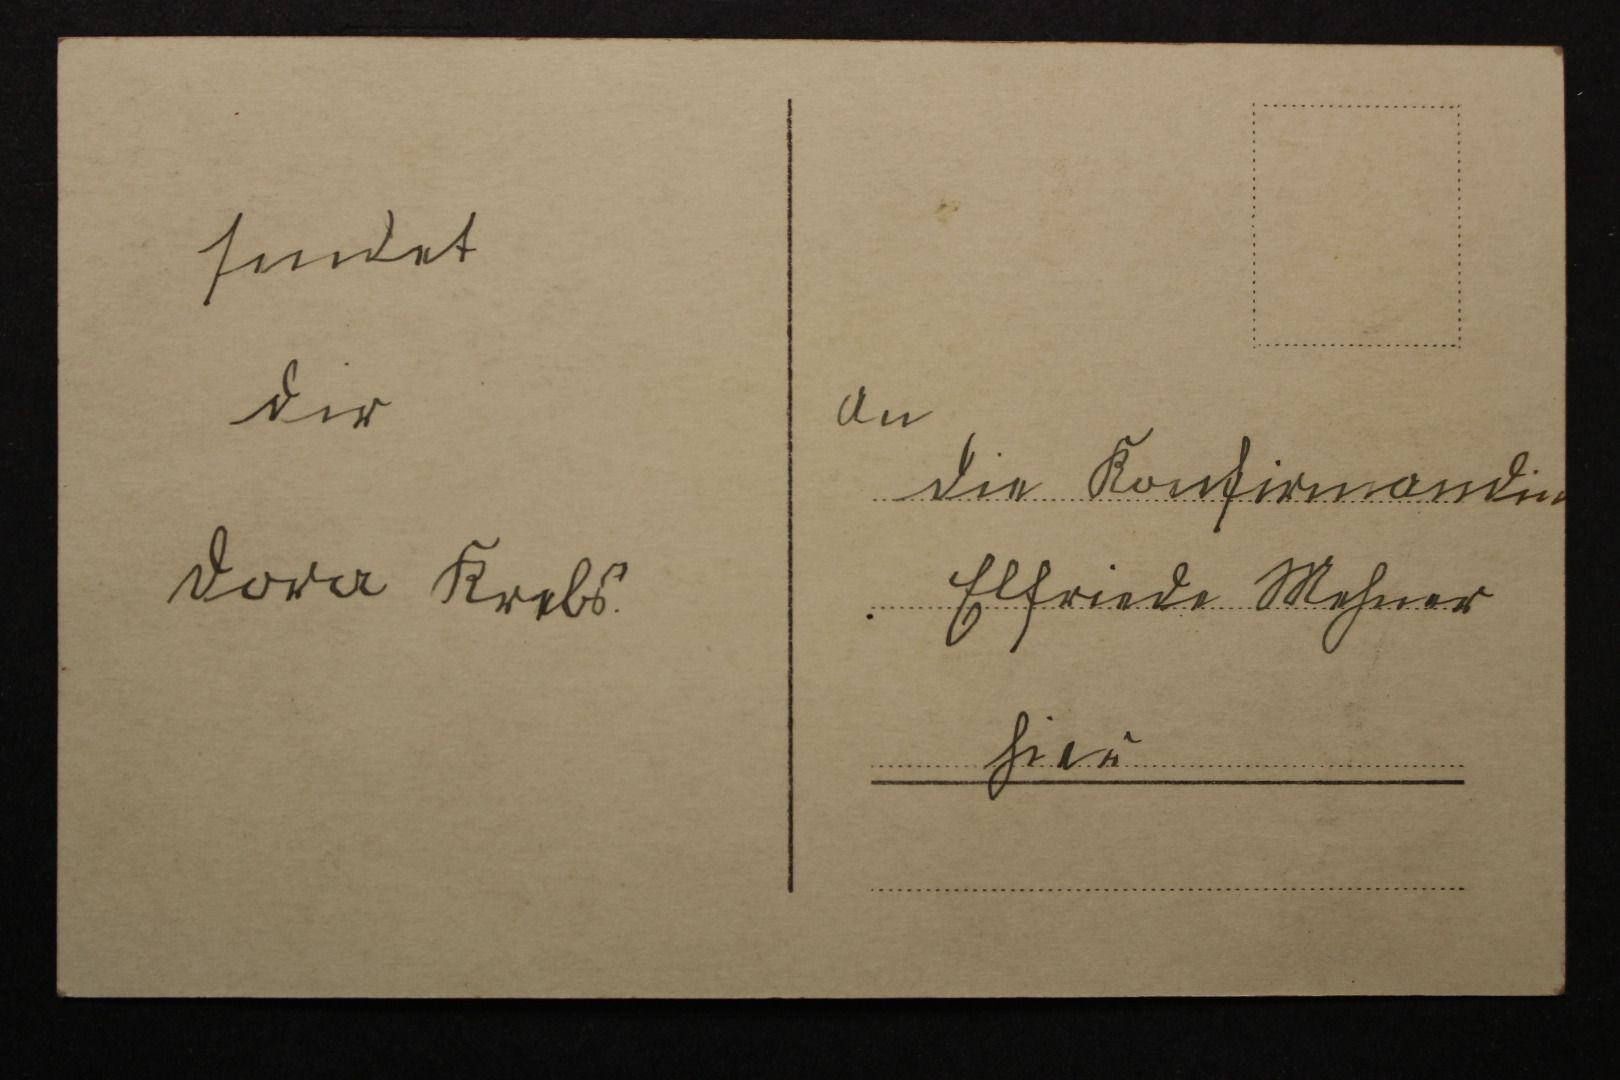 sendet
dir
Dora Krebs.
An
die Konfirmandin
Elfriede Mehner
hier